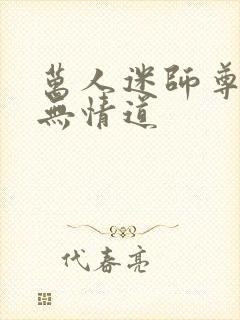 萬人迷師尊
無情道
代春亮